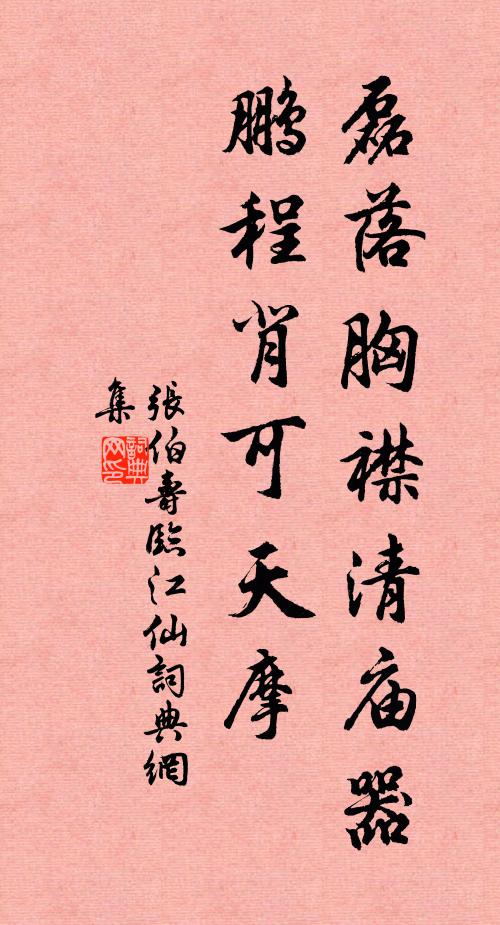 磊落胸襟清庙器
鹏程背可天摩
張伯壽臨江仙詞典網
集
詞典
网印